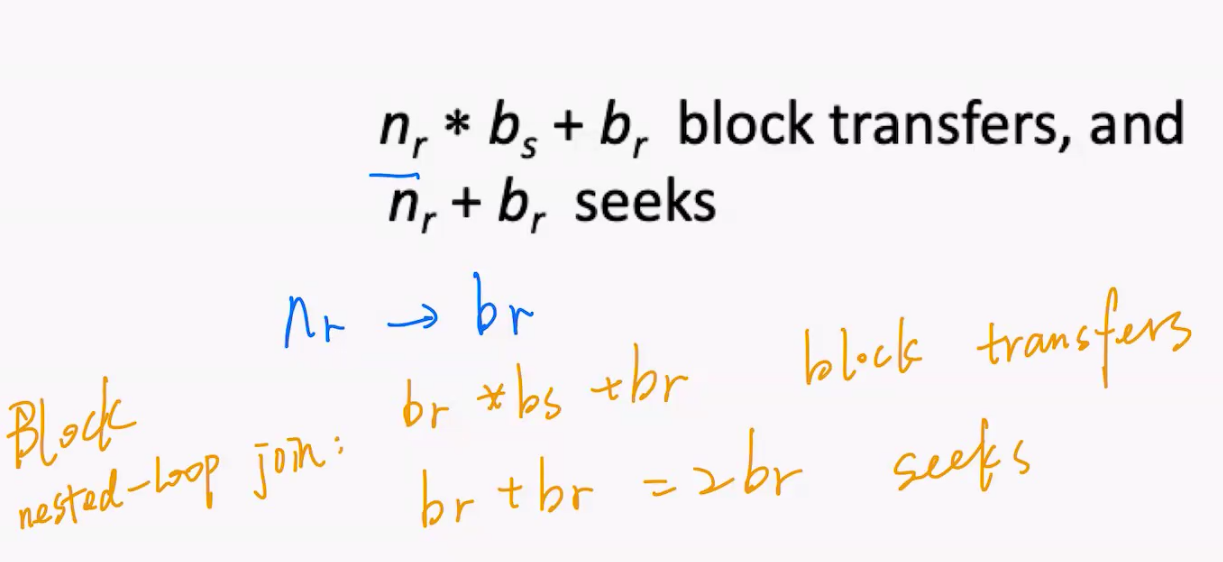 nᵣ * bₛ + bᵣ block transfers, and
nᵣ + bᵣ seeks
nr → br
Block
nested-loop join:
br * bs + br block transfers
br + br = 2br seeks